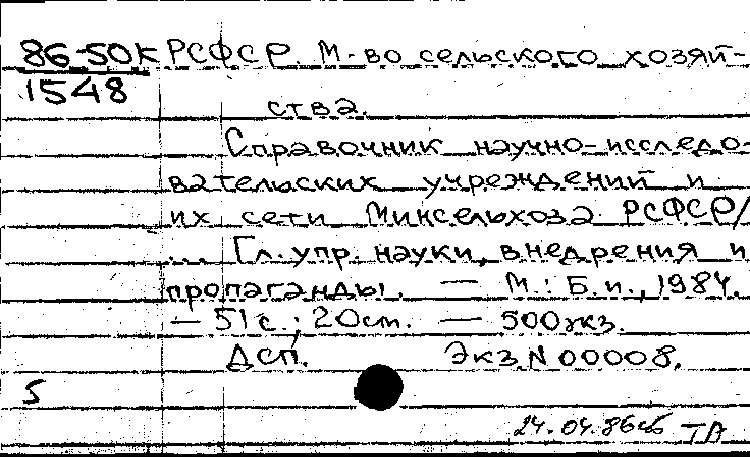 86-50К РСФСР. М-во сельского хозяй-
1548
ства.
Справочник научно-исследо-
вательских учреждений и
их сети Минсельхоза РСФСР/
... Гл. упр. науки, внедрения и
пропаганды. — М.: Б.и., 1984.
— 51 с.; 20 см. — 500 экз.
Дсп. Экз. N 00008.
5
24.04.86 ТА